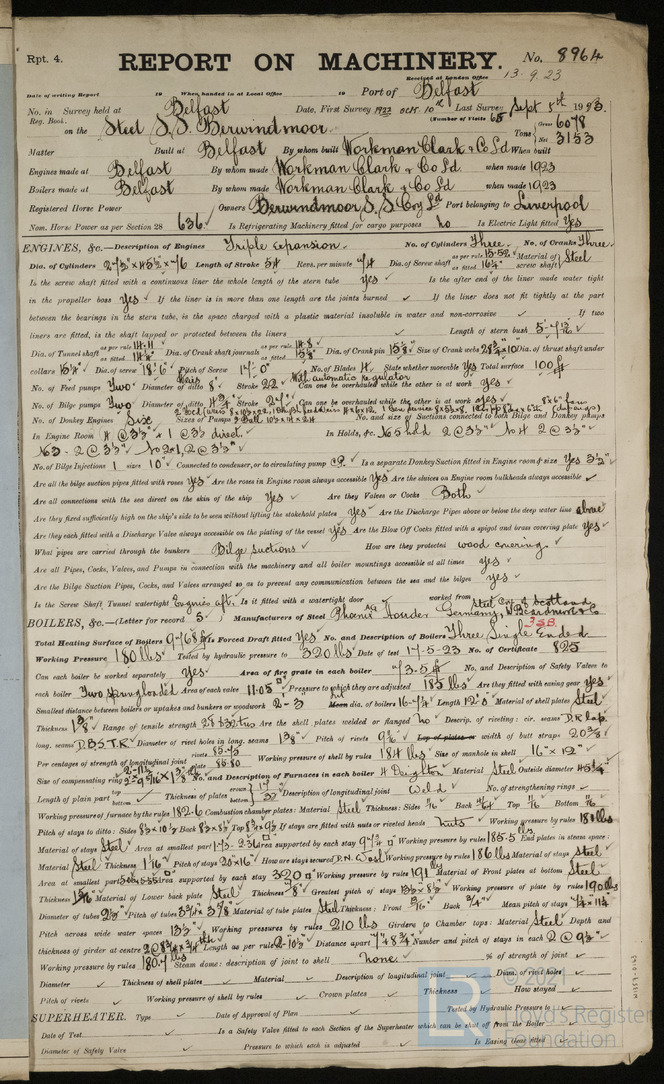 Rpt. 4.
REPORT ON MACHINERY. No. 8964
Received at London Office 13.9.23
Date of writing Report 19 When handed in at Local Office 19 Port of Belfast
No. in Reg. Book. Survey held at Belfast Date, First Survey 1922 Oct. 10th Last Survey Sept 5th 1923.
(Number of Visits 65
on the Steel S.S. Berwindmoor Tons Gross 6078 Net 3153
Master Built at Belfast By whom built Workman Clark & Co Ld When built
Engines made at Belfast By whom made Workman Clark & Co Ld when made 1923
Boilers made at Belfast By whom made Workman Clark & Co Ld when made 1923
Registered Horse Power Owners Berwindmoor S.S. Coy Ld Port belonging to Liverpool
Nom. Horse Power as per Section 28 636 Is Refrigerating Machinery fitted for cargo purposes No Is Electric Light fitted Yes
ENGINES, &c.—Description of Engines Triple Expansion. No. of Cylinders Three No. of Cranks Three
Dia. of Cylinders Length of Stroke 54 Revs. per minute 74 Dia. of Screw shaft as per rule 15.52 as fitted 16¼" Material of screw shaft Steel
Is the screw shaft fitted with a continuous liner the whole length of the stern tube Yes Is the after end of the liner made water tight
in the propeller boss Yes If the liner is in more than one length are the joints burned If the liner does not fit tightly at the part
between the bearings in the stern tube, is the space charged with a plastic material insoluble in water and non-corrosive If two
liners are fitted, is the shaft lapped or protected between the liners Length of stern bush
Dia. of Tunnel shaft as per rule as fitted Dia. of Crank shaft journals as per rule as fitted Dia. of Crank pin Size of Crank webs Dia. of thrust shaft under
collars Dia. of screw 18' 6" Pitch of Screw 17' 0" No. of Blades 4 State whether moveable Yes Total surface 100
No. of Feed pumps Two Diameter of ditto 8" Stroke 22 With automatic regulator Can one be overhauled while the other is at work Yes
No. of Bilge pumps Two Diameter of ditto Stroke 27" Can one be overhauled while the other is at work Yes
No. of Donkey Engines Six Sizes of Pumps No. and size of Suctions connected to both Bilge and Donkey pumps
In Engine Room 4 @ 3½" + 1 @ 3½ direct. In Holds, &c. No 5 hold 2 @ 3½" No 4 2 @ 3½"
No 3 - 2 @ 3½" No 2 & 1, 2 @ 3½"
No. of Bilge Injections 1 sizes 10" Connected to condenser, or to circulating pump C.P. Is a separate Donkey Suction fitted in Engine room & size Yes 3½"
Are all the bilge suction pipes fitted with roses Yes Are the roses in Engine room always accessible Yes Are the sluices on Engine room bulkheads always accessible
Are all connections with the sea direct on the skin of the ship Yes Are they Valves or Cocks Both
Are they fixed sufficiently high on the ship's side to be seen without lifting the stokehold plates Yes Are the Discharge Pipes above or below the deep water line above
Are they each fitted with a Discharge Valve always accessible on the plating of the vessel Yes Are the Blow Off Cocks fitted with a spigot and brass covering plate Yes
What pipes are carried through the bunkers Bilge suctions How are they protected wood covering
Are all Pipes, Cocks, Valves, and Pumps in connection with the machinery and all boiler mountings accessible at all times Yes
Are the Bilge Suction Pipes, Cocks, and Valves arranged so as to prevent any communication between the sea and the bilges Yes
Is the Screw Shaft Tunnel watertight Engines aft. Is it fitted with a watertight door worked from
BOILERS, &c.—(Letter for record S.) Manufacturers of Steel Phoenix Germany, Steel Coy of Scotland W. Beardmore & Co
3 S.B.
Total Heating Surface of Boilers Is Forced Draft fitted Yes No. and Description of Boilers Three Single Ended
Working Pressure 180 lbs Tested by hydraulic pressure to 320 lbs Date of test 17-5-23 No. of Certificate 825
Can each boiler be worked separately Yes. Area of fire grate in each boiler 73.5 No. and Description of Safety Valves to
each boiler Two springloaded Area of each valve 11.05 Pressure to which they are adjusted 185 lbs Are they fitted with easing gear Yes
Smallest distance between boilers or uptakes and bunkers or woodwork 2-3 dia. of boilers 16-7¼ Length 12'0" Material of shell plates Steel
Thickness Range of tensile strength Are the shell plates welded or flanged No Descrip. of riveting: cir. seams D.R. Lap.
long. seams D.B.S.T.R. Diameter of rivet holes in long. seams 1⅜" Pitch of rivets Lap of plates or width of butt straps 20⅜
Per centages of strength of longitudinal joint rivets plate 85.80 Working pressure of shell by rules 184 lbs Size of manhole in shell 16" × 12"
Size of compensating ring No. and Description of Furnaces in each boiler 4 Deighton Material Steel Outside diameter
Length of plain part top bottom Thickness of plates crown bottom Description of longitudinal joint Weld No. of strengthening rings
Working pressure of furnace by the rules 182.6 Combustion chamber plates: Material Steel Thickness: Sides Back Top Bottom
Pitch of stays to ditto: Sides Back Top If stays are fitted with nuts or riveted heads Nuts Working pressure by rules 180 lbs
Material of stays Steel Area at smallest part Area supported by each stay Working pressure by rules 185.5 lbs End plates in steam space:
Material Steel Thickness Pitch of stays 20×16" How are stays secured D.N. Wash Working pressure by rules 186 lbs Material of stays Steel
Area at smallest part Area supported by each stay 320 Working pressure by rules 191 lbs Material of Front plates at bottom Steel
Thickness Material of Lower back plate Steel Thickness Greatest pitch of stays Working pressure of plate by rules 190 lbs
Diameter of tubes 2½ Pitch of tubes Material of tube plates Steel Thickness: Front Back ¾" Mean pitch of stays
Pitch across wide water spaces 13½" Working pressures by rules 210 lbs Girders to Chamber tops: Material Steel Depth and
thickness of girder at centre Length as per rule Distance apart Number and pitch of stays in each 2 @ 9½"
Working pressure by rules 180.7 lbs Steam dome: description of joint to shell None. % of strength of joint
Diameter Thickness of shell plates Material Description of longitudinal joint Diam. of rivet holes
Pitch of rivets Working pressure of shell by rules Crown plates Thickness How stayed
SUPERHEATER. Type Date of Approval of Plan Tested by Hydraulic Pressure to
Date of Test Is a Safety Valve fitted to each Section of the Superheater which can be shut off from the Boiler
Diameter of Safety Valve Pressure to which each is adjusted Is Easing Gear fitted
© 2021
Lloyd's Register
Foundation